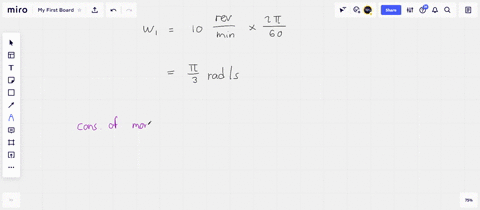 miro My First Board Share
W₁ = 10 rev/min × 2π/60
= π/3 rad/s
cons. of mom
75%